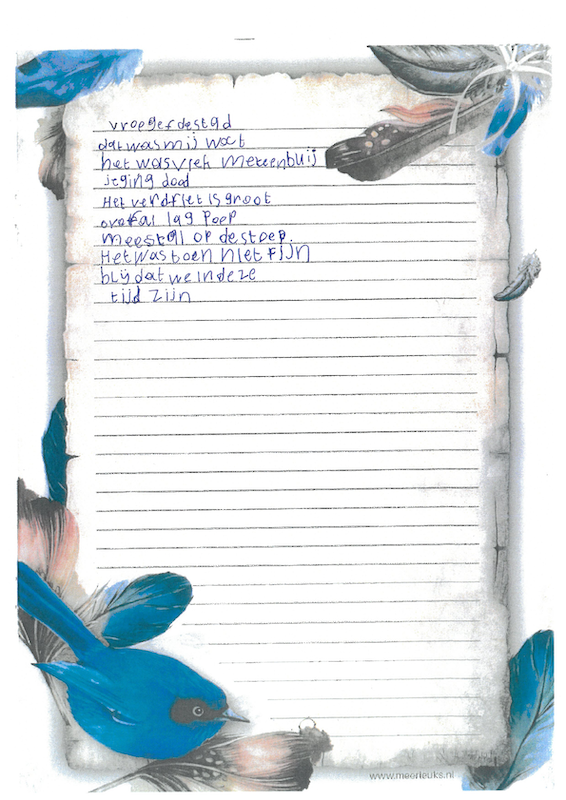 vroeger de stad
dat was mij wat
het was vief met een buij
je ging dood
Het verdriet is groot
overal lag Poep
meestal op de stoep.
Het was toen niet Fijn
blij dat we in deze
tijd zijn
www.meerleuks.nl